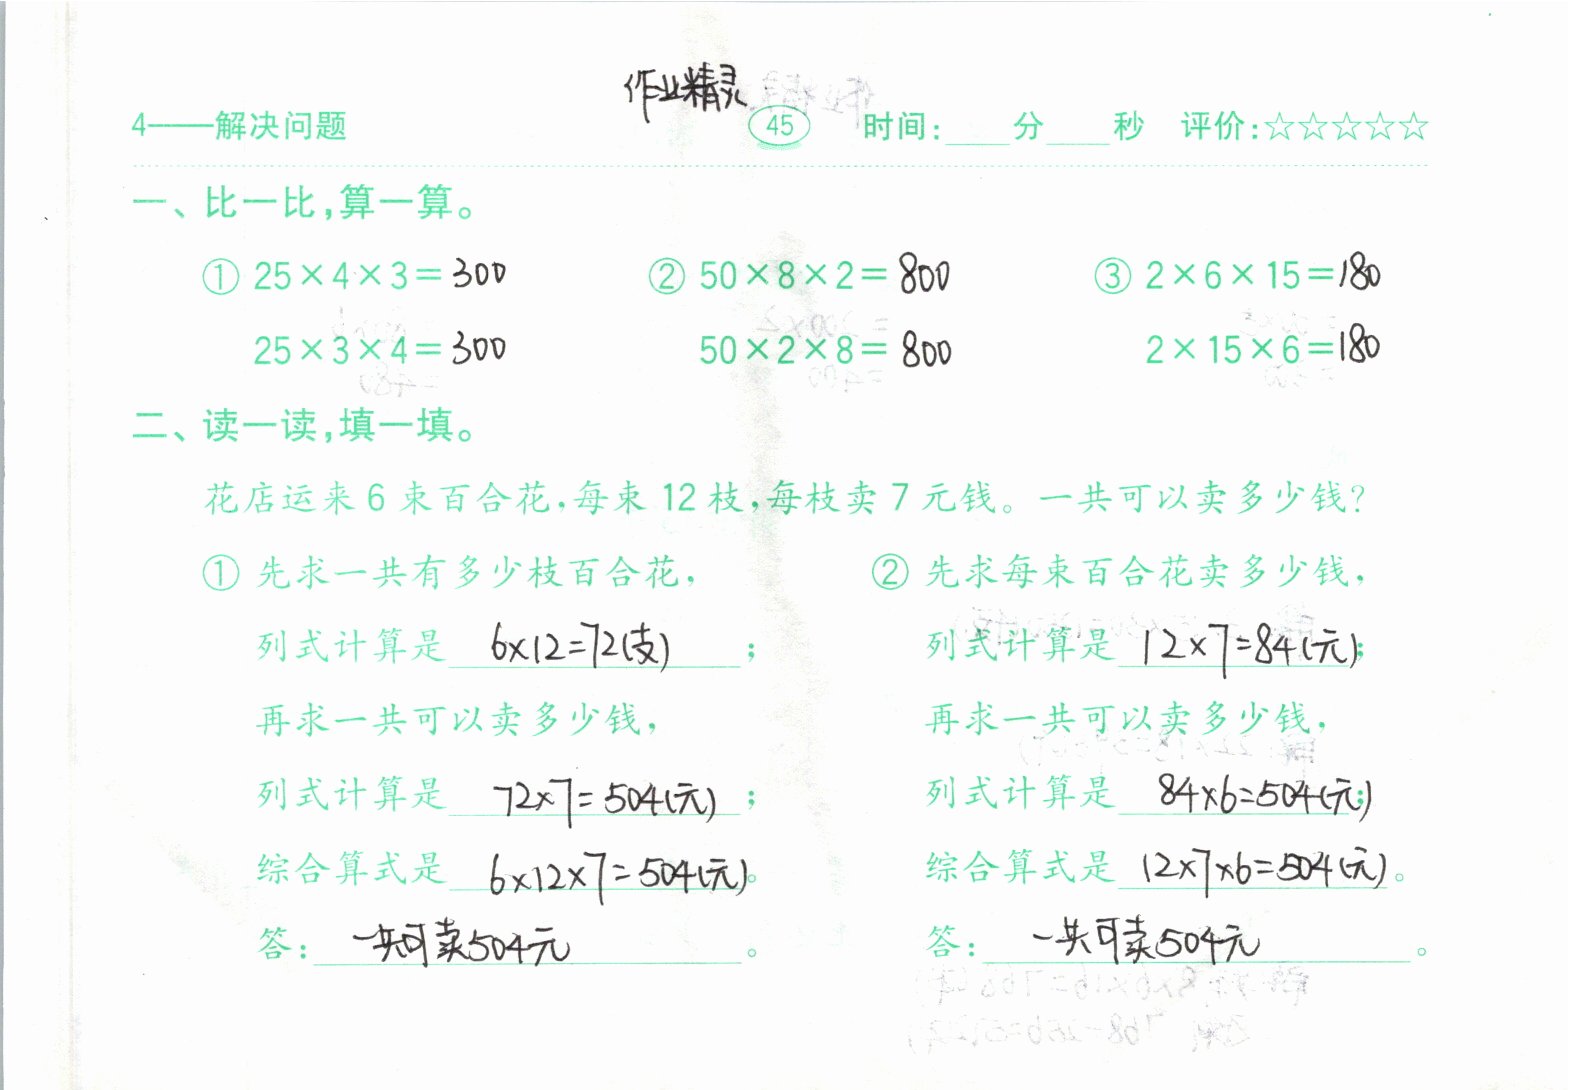 作业精灵
4——解决问题 45 时间:____分____秒 评价:☆☆☆☆☆
一、比一比,算一算。
① 25×4×3=300 ② 50×8×2=800 ③ 2×6×15=180
25×3×4=300 50×2×8=800 2×15×6=180
二、读一读,填一填。
花店运来6束百合花,每束12枝,每枝卖7元钱。一共可以卖多少钱?
① 先求一共有多少枝百合花,
列式计算是 6×12=72(支) ;
再求一共可以卖多少钱,
列式计算是 72×7=504(元) ;
综合算式是 6×12×7=504(元)。
答: 一共可卖504元 。
② 先求每束百合花卖多少钱,
列式计算是 12×7=84(元);
再求一共可以卖多少钱,
列式计算是 84×6=504(元);
综合算式是 12×7×6=504(元)。
答: 一共可卖504元 。